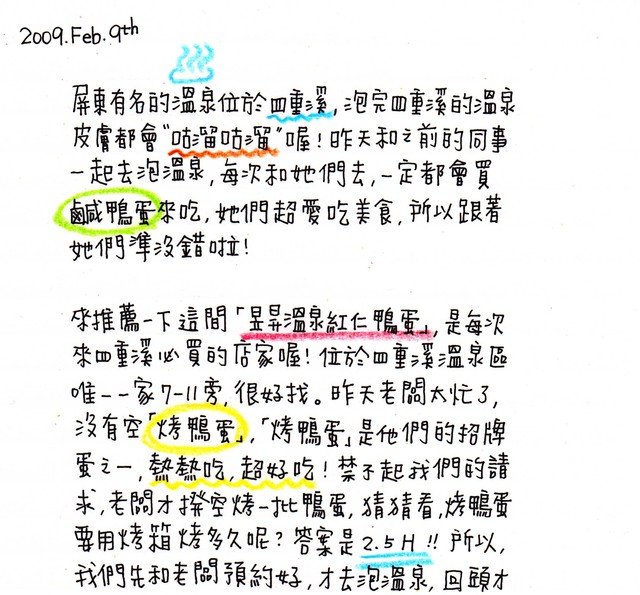 2009.Feb.9th
屏東有名的溫泉位於四重溪,泡完四重溪的溫泉
皮膚都會"咕溜咕溜"喔!昨天和之前的同事
一起去泡溫泉,每次和她們去,一定都會買
鹹鴨蛋來吃,她們超愛吃美食,所以跟著
她們準沒錯啦!
來推薦一下這間「昱昇溫泉紅仁鴨蛋」,是每次
來四重溪必買的店家喔!位於四重溪溫泉區
唯一一家7-11旁,很好找。昨天老闆太忙了,
沒有空「烤鴨蛋」,「烤鴨蛋」是他們的招牌
蛋之一,熱熱吃,超好吃!禁不起我們的請
求,老闆才撥空烤一批鴨蛋,猜猜看,烤鴨蛋
要用烤箱烤多久呢?答案是2.5H!!所以,
我們先和老闆預約好,才去泡溫泉,回頭才